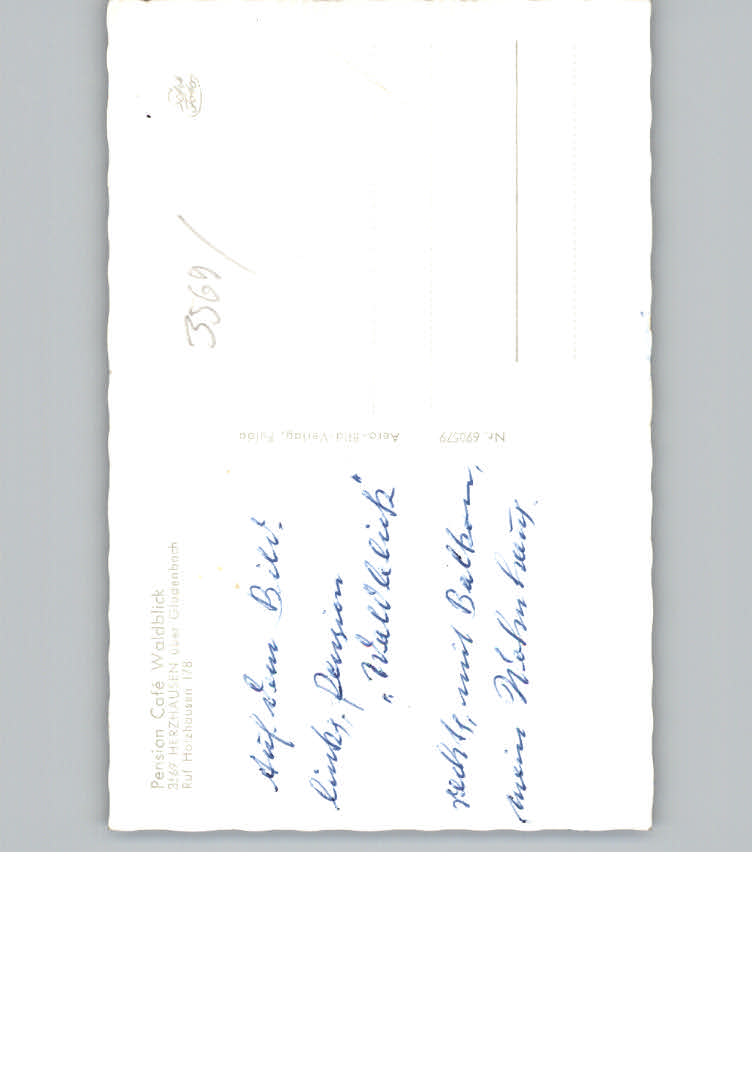 Pension Café Waldblick
3569 HERZHAUSEN über Gladenbach
Ruf Holzhausen 178
Auf dem Bild.
links, Pension
„Waldblick“
rechts, mit Balkon,
mein Wohnhaus.
Aero-Bild-Verlag, Fulda
Nr. 690579
3569